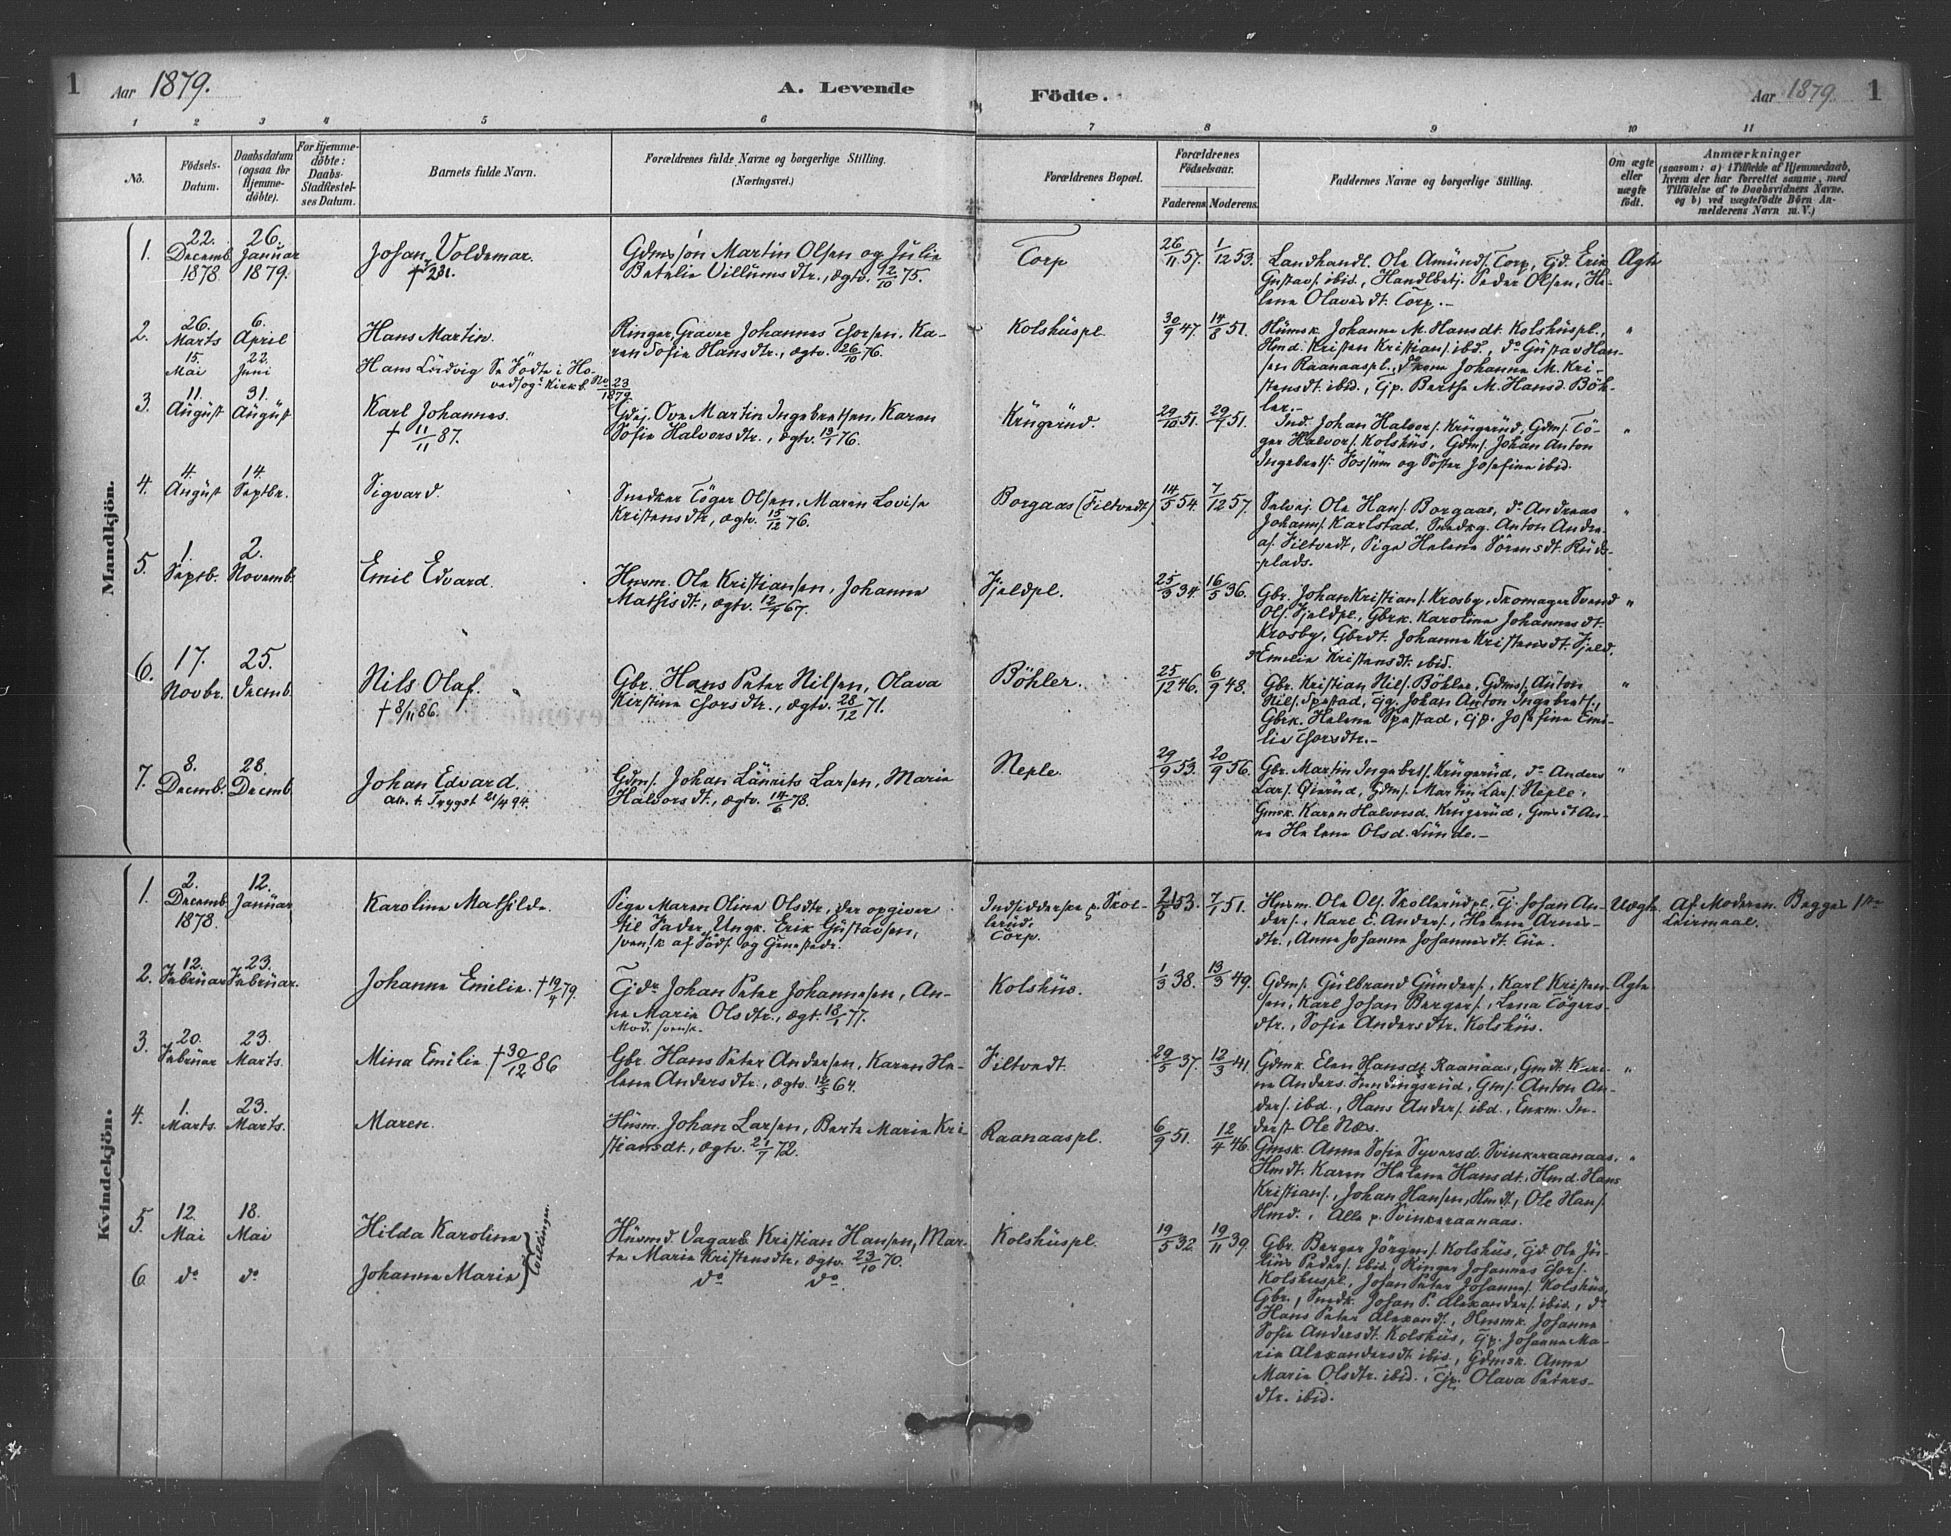 1 Aar 1879. A. Levende Födte. Aar 1879. 1
1 2 3 4 5 6 7 8 9 10 11
No.
Födsels-
Datum.
Daabsdatum
(ogsaa for
Hjemme-
döbte).
For Hjemme-
döbte:
Daabs-
Stadfæstel-
ses Datum.
Barnets fulde Navn.
Forældrenes fulde Navne og borgerlige Stilling.
(Næringsvei.)
Forældrenes Bopæl.
Forældrenes
Födselsaar.
Faderens. Moderens.
Faddernes Navne og borgerlige Stilling.
Om ægte
eller
uægte
födt.
Anmærkninger
(saasom: a) i Tilfælde af Hjemmedaab,
hvem der har forrettet samme, med
Tilföielse af to Daabsvidners Navne,
og b) ved uægtefödte Börn An-
melderens Navn m. V.)
Mandkjön.
1.
22.
Decemb.
1878.
26.
Januar
1879.
Johan Voldemar.
Gdmssön Martin Olsen og Julie
Betalie Villumsdtr., ægtv. 12/10 75.
Torp
26/11 57. 1/12 53.
Landhandl. Ole Amunds. Torp, Gd. Erik
Gustavs. ibid., Handlbetj. Peder Olsen, He-
lene Olavesdt. Torp.
Ægte
2.
26.
Marts
6.
April
Hans Martin.
Ringer, Graver Johannes Thorsen, Ka-
ren Sofie Hansdtr., ægtv. 26/10 76.
Kolshuspl.
30/9 47. 14/8 51.
Husmk. Johanne M. Hansdt. Kolshuspl.,
Hmd. Kristen Kristians. ibd., do Gustav Han-
sen Raanaaspl., do kone Johanne M. Kri-
stensdt. ibid., Gp. Berthe M. Hansd. Böh-
ler.
"
15.
Mai
22.
Juni
Hans Ludvig Se Födte i Ho-
vedsogn Kirkb. No 23/1879
3.
11.
August
31.
August
Karl Johannes.
† 11/11 87.
Gdej. Ove Martin Ingebretsen, Karen
Sofie Halvorsdtr., ægtv. 19/1 76.
Krügerud.
29/10 51. 29/7 51.
Ind. Johan Halvors. Krügerud, Gdms. Tö-
ger Halvors. Kolshus, Gdms. Johan Anton
Ingebrets. Fossum og Söster Josefine ibid.
"
4.
4.
August
14.
Septbr.
Sigvard.
Snedker Töger Olsen, Maren Lovise
Kristensdtr., ægtv. 15/12 76.
Borgaas (Filtvedt)
14/5 54. 7/12 57.
Selvej. Ole Hans. Borgaas, do Andreas
Johanns. Karlstad, Snedkg. Anton Andre-
as. Filtvedt, Pige Helene Sörensdt. Ruds-
plads.
"
5.
1.
Septb.
2.
Novemb.
Emil Edvard.
Husm. Ole Kristiansen, Johanne
Mathisdt., ægtv. 12/7 67.
Fjeldpl.
25/3 34. 16/5 36.
Gbr. Johan Kristians. Krosby, Skomager Svend
Ols. Fjeldpl., Gbrk. Karoline Johannesdt.
Krosby, Gbrdt. Johanne Kristensdt. Fjeld,
do Emelie Kristensdt. ibid.
"
6.
17.
Novbr.
25.
Decmb.
Nils Olaf.
† 8/11 86.
Gbr. Hans Peter Nilsen, Olava
Kirstine Thorsdtr., ægtv. 28/12 71.
Böhler.
25/12 46. 6/9 48.
Gbr. Kristian Nils. Böhler, Gdms. Anton
Nils. Spæstad, Gg. Johan Anton Ingebrets.,
Gbrk. Helene Spæstad, Gp. Josefine Emi-
lie Thorsdtr.
"
7.
8.
Decemb.
28.
Decmb.
Johan Edvard.
Gdms. Johan Laurits Larsen, Marie
Halvorsdt., ægtv. 14/6 78.
Neple.
29/9 53. 20/9 56.
Gbr. Martin Ingebrets. Krügerud, do Anders
Lars. Öierud, Gdms. Martin Lars. Neple,
Gmsk. Karen Halvorsd. Krügerud, Gmsdt. An-
ne Helene Olsd. Lunde.
"
Kvindekjön.
1.
2.
Decemb.
1878.
12.
Januar
Karoline Mathilde.
Pige Maren Oline Olsdtr., der opgiver
til Fader Ungk. Erik Gustavsen,
svensk af Födsel og Tjenestedr.
Indsidderske p. Skol-
lerud.
Torp.
53. 7/1 51.
Husm. Ole Ols. Skollerudpl., Gj. Johan An-
ders., Karl E. Anders., Helene Arnes-
dtr., Anne Johanne Johannesdt. Tue.
Uægte.
Af Moderen. Begges 1ste
Leiermaal.
2.
12.
Februar
23.
Februar.
Johanne Emilie. † 19/4 79.
Gjdr Johan Peter Johannesen, An-
ne Marie Olsdtr., ægt. 18/1 77.
Mod. svensk.
Kolshus.
1/3 38. 13/3 49.
Gdms. Gulbrand Gunders., Karl Kristen-
sen, Karl Johan Bergers., Lena Tögers-
dtr., Sofie Andersdtr. Kolshus.
Ægte.
3.
20.
Februar
23.
Marts.
Mina Emilie † 30/12 86
Gbr. Hans Peter Andersen, Karen He-
lene Andersdtr., ægtv. 16/5 64.
Filtvedt
29/5 37. 12/3 41.
Gdmk. Elen Hansdt. Raanaas, Gmdt. Kari-
ne Anders. Sundingsrud, Gms. Anton An-
ders. ibd., Hans Anders. ibd., Enkm. In-
derst Ole Næs.
"
4.
1.
Marts.
23.
Marts.
Maren.
Husm. Johan Larsen, Berte Marie Kri-
stiansdt., ægtv. 21/7 72.
Raanaaspl.
6/9 51. 12/4 46.
Gmsk. Anne Sofie Syversd. Svinkeraanaas,
Hmdt. Karen Helene Hansdt., Hmd. Hans
Kristians., Johan Hansen, Hmds., Ole Hans.
Hmd., Alle p. Svinkeraanaas.
"
5.
12.
Mai
18.
Mai
Hilda Karoline
Husmd. Vagarb. Kristian Hansen, Mar-
te Marie Kristensdtr., ægtv. 23/10 70.
Kolshuspl.
19/5 32. 19/11 39.
Gbr. Berger Jörgens. Kolshus, Gd. Ole Ju-
lius Peders. ibid., Ringer Johannes Thors.
Kolshuspl., Johan Peter Johannes. Kolshus,
Gbr., Snedk. Johan P. Alexanders. ibid., do
Hans Peter Alexand., Husmk. Johanne
Sofie Andersdt. Kolshus, Gp. Johanne Ma-
rie Alexandersdt. ibid., Gdmsk. Anne
Marie Olsdtr. ibid., Gp. Olava Peters-
dtr. ibid.
6. do do Johanne Marie
Tvillinger.
do do